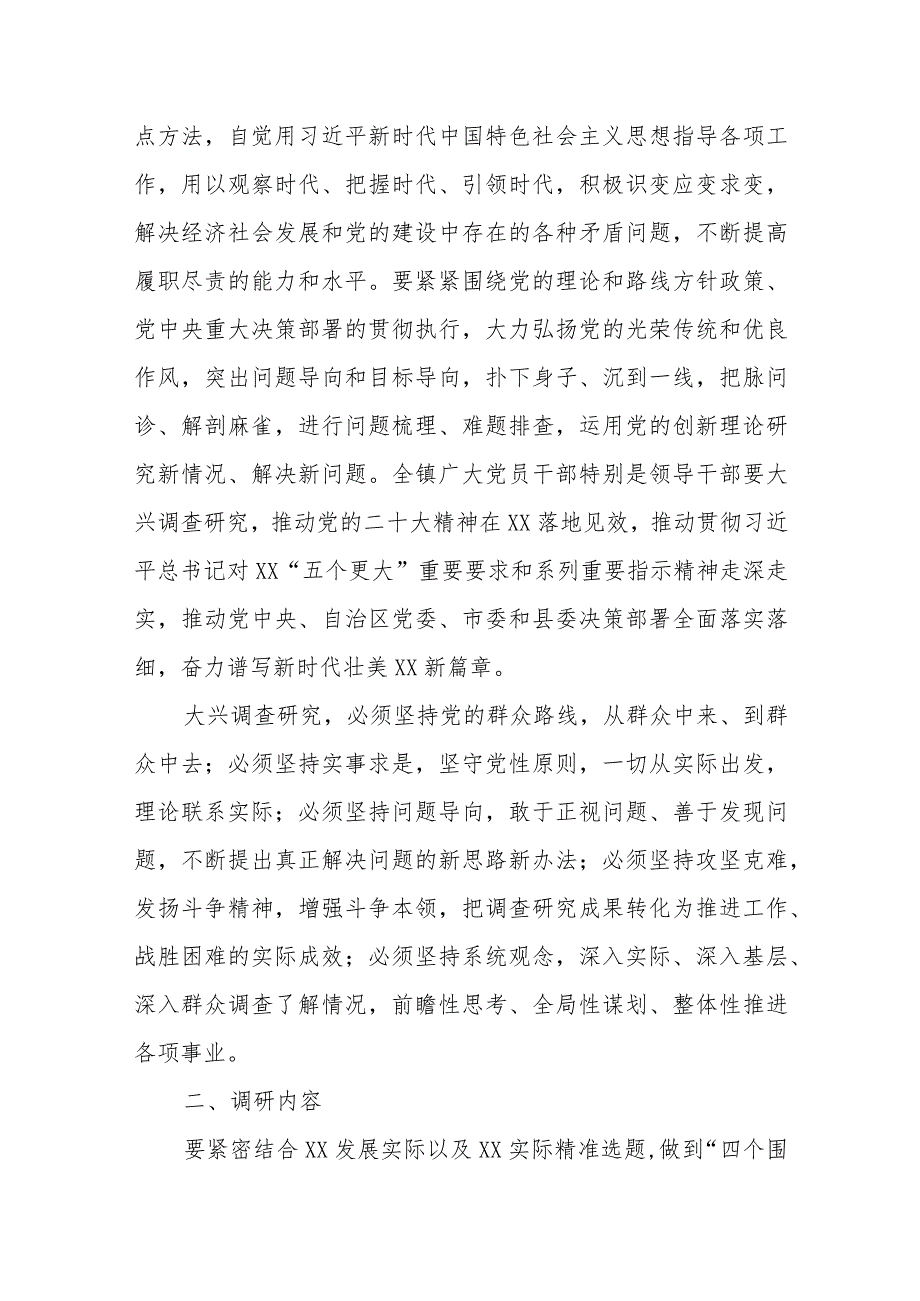 点方法，自觉用习近平新时代中国特色社会主义思想指导各项工
作，用以观察时代、把握时代、引领时代，积极识变应变求变，
解决经济社会发展和党的建设中存在的各种矛盾问题，不断提高
履职尽责的能力和水平。要紧紧围绕党的理论和路线方针政策、
党中央重大决策部署的贯彻执行，大力弘扬党的光荣传统和优良
作风，突出问题导向和目标导向，扑下身子、沉到一线，把脉问
诊、解剖麻雀，进行问题梳理、难题排查，运用党的创新理论研
究新情况、解决新问题。全镇广大党员干部特别是领导干部要大
兴调查研究，推动党的二十大精神在XX落地见效，推动贯彻习近
平总书记对XX“五个更大”重要要求和系列重要指示精神走深走
实，推动党中央、自治区党委、市委和县委决策部署全面落实落
细，奋力谱写新时代壮美XX新篇章。
大兴调查研究，必须坚持党的群众路线，从群众中来、到群
众中去；必须坚持实事求是，坚守党性原则，一切从实际出发，
理论联系实际；必须坚持问题导向，敢于正视问题、善于发现问
题，不断提出真正解决问题的新思路新办法；必须坚持攻坚克难，
发扬斗争精神，增强斗争本领，把调查研究成果转化为推进工作、
战胜困难的实际成效；必须坚持系统观念，深入实际、深入基层、
深入群众调查了解情况，前瞻性思考、全局性谋划、整体性推进
各项事业。
二、调研内容
要紧密结合XX发展实际以及XX实际精准选题,做到“四个围